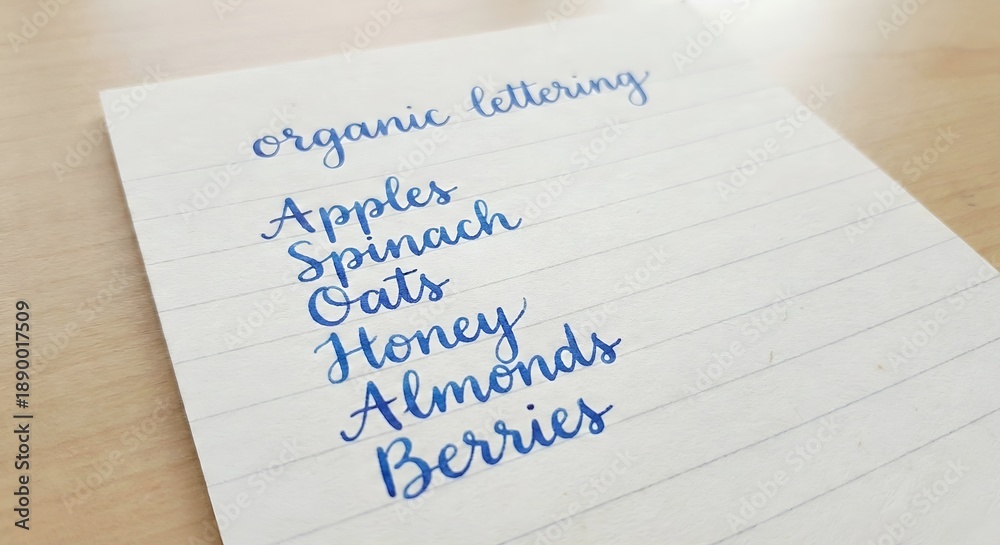 organic lettering
Apples
Spinach
Oats
Honey
Almonds
Berries
Adobe Stock | #1890017509